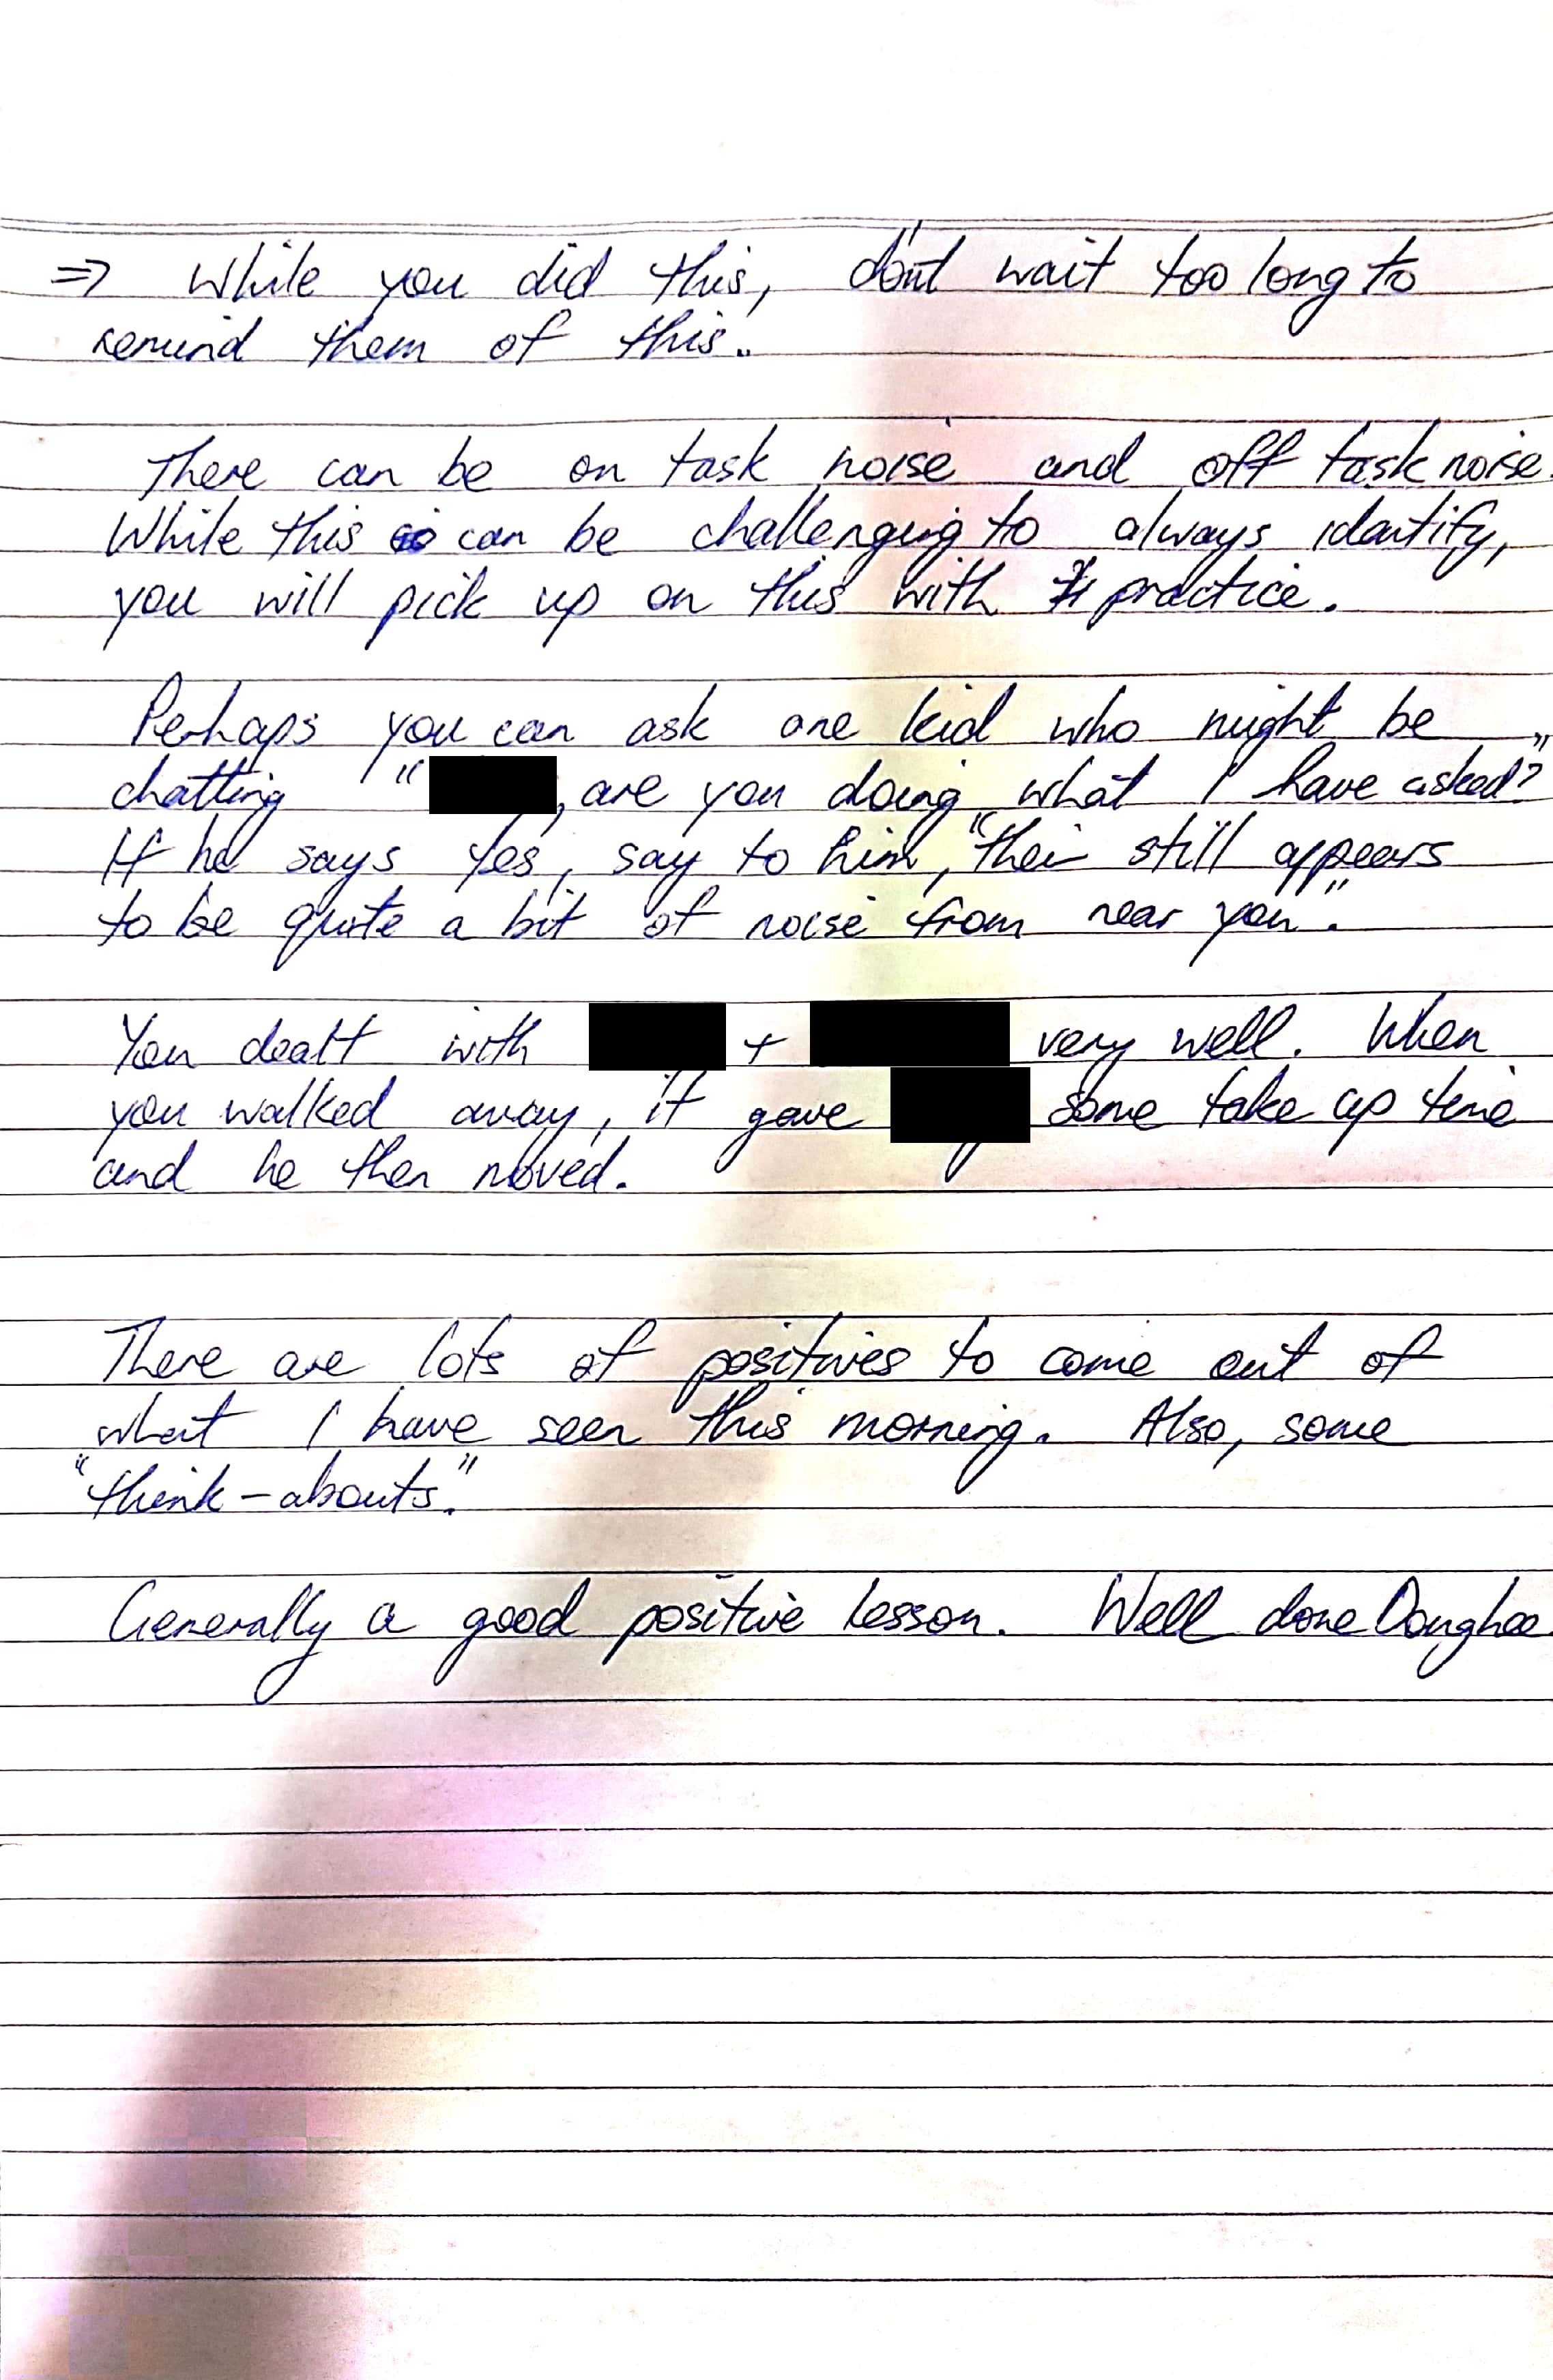 ⇒ While you did this, don't wait too long to
remind them of this.
There can be on task noise and off task noise.
While this can be challenging to always identify,
you will pick up on this with practice.
Perhaps you can ask one kid who might be
chatting " , are you doing what I have asked?"
If he says Yes, say to him, "their still appears
to be quite a bit of noise from near you".
You dealt with + very well. When
you walked away, it gave some take up time
and he then moved.
There are lots of positives to come out of
what I have seen this morning. Also, some
"think-abouts."
Generally a good positive lesson. Well done